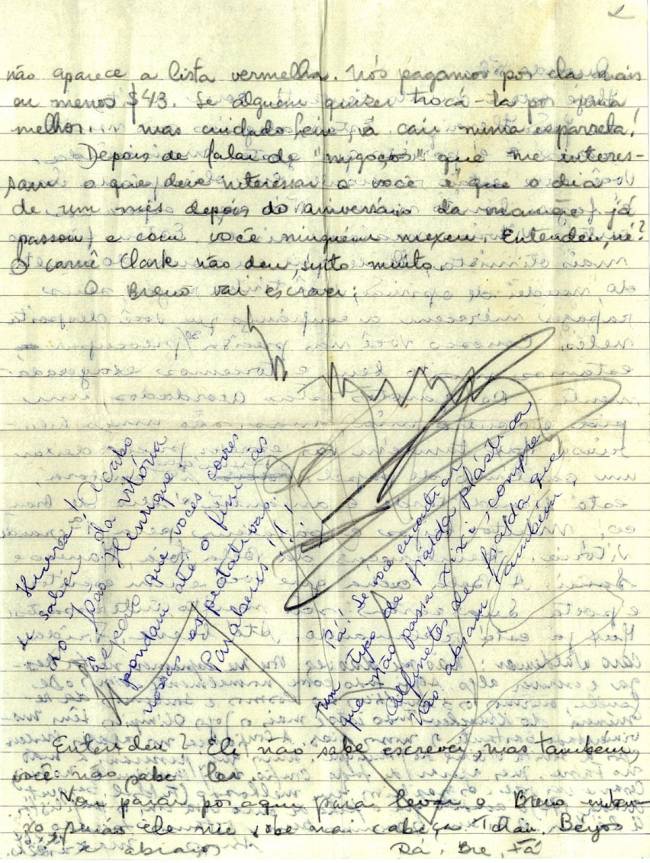 2
não aparece a lista vermelha. Nós pagamos por ela mais
ou menos $43. Se alguém quiser trocá-la por
melhor... mas cuidado feio, vá cair numa esparrela!
Depois de falar de "migoços" que me interes-
sam o que deve interessar a você é que o dia
de um mês depois do aniversário da mamãe já
passou e com você ninguém mexeu. Entendeu, né?
O carnê Clark não deu, sinto muito.
O Breno vai escrever:
Hurra! Acabo
de saber da vitória
do João Henrique!
que vocês
pondam até o fim as
nossas expectativas.
Parabéns!!!
Pá! Se você encontrar
um tipo de fralda plástica
que não passa xixi, compre
Alfinetes de fralda que
não abrem também.
Entendeu? Ele não sabe escrever, mas também
você não sabe ler.
Vou parar por aqui para levar o Breno
senão ele me sobe na cabeça. Tchau, Beijos
e abraços Rá, Bre, Fá